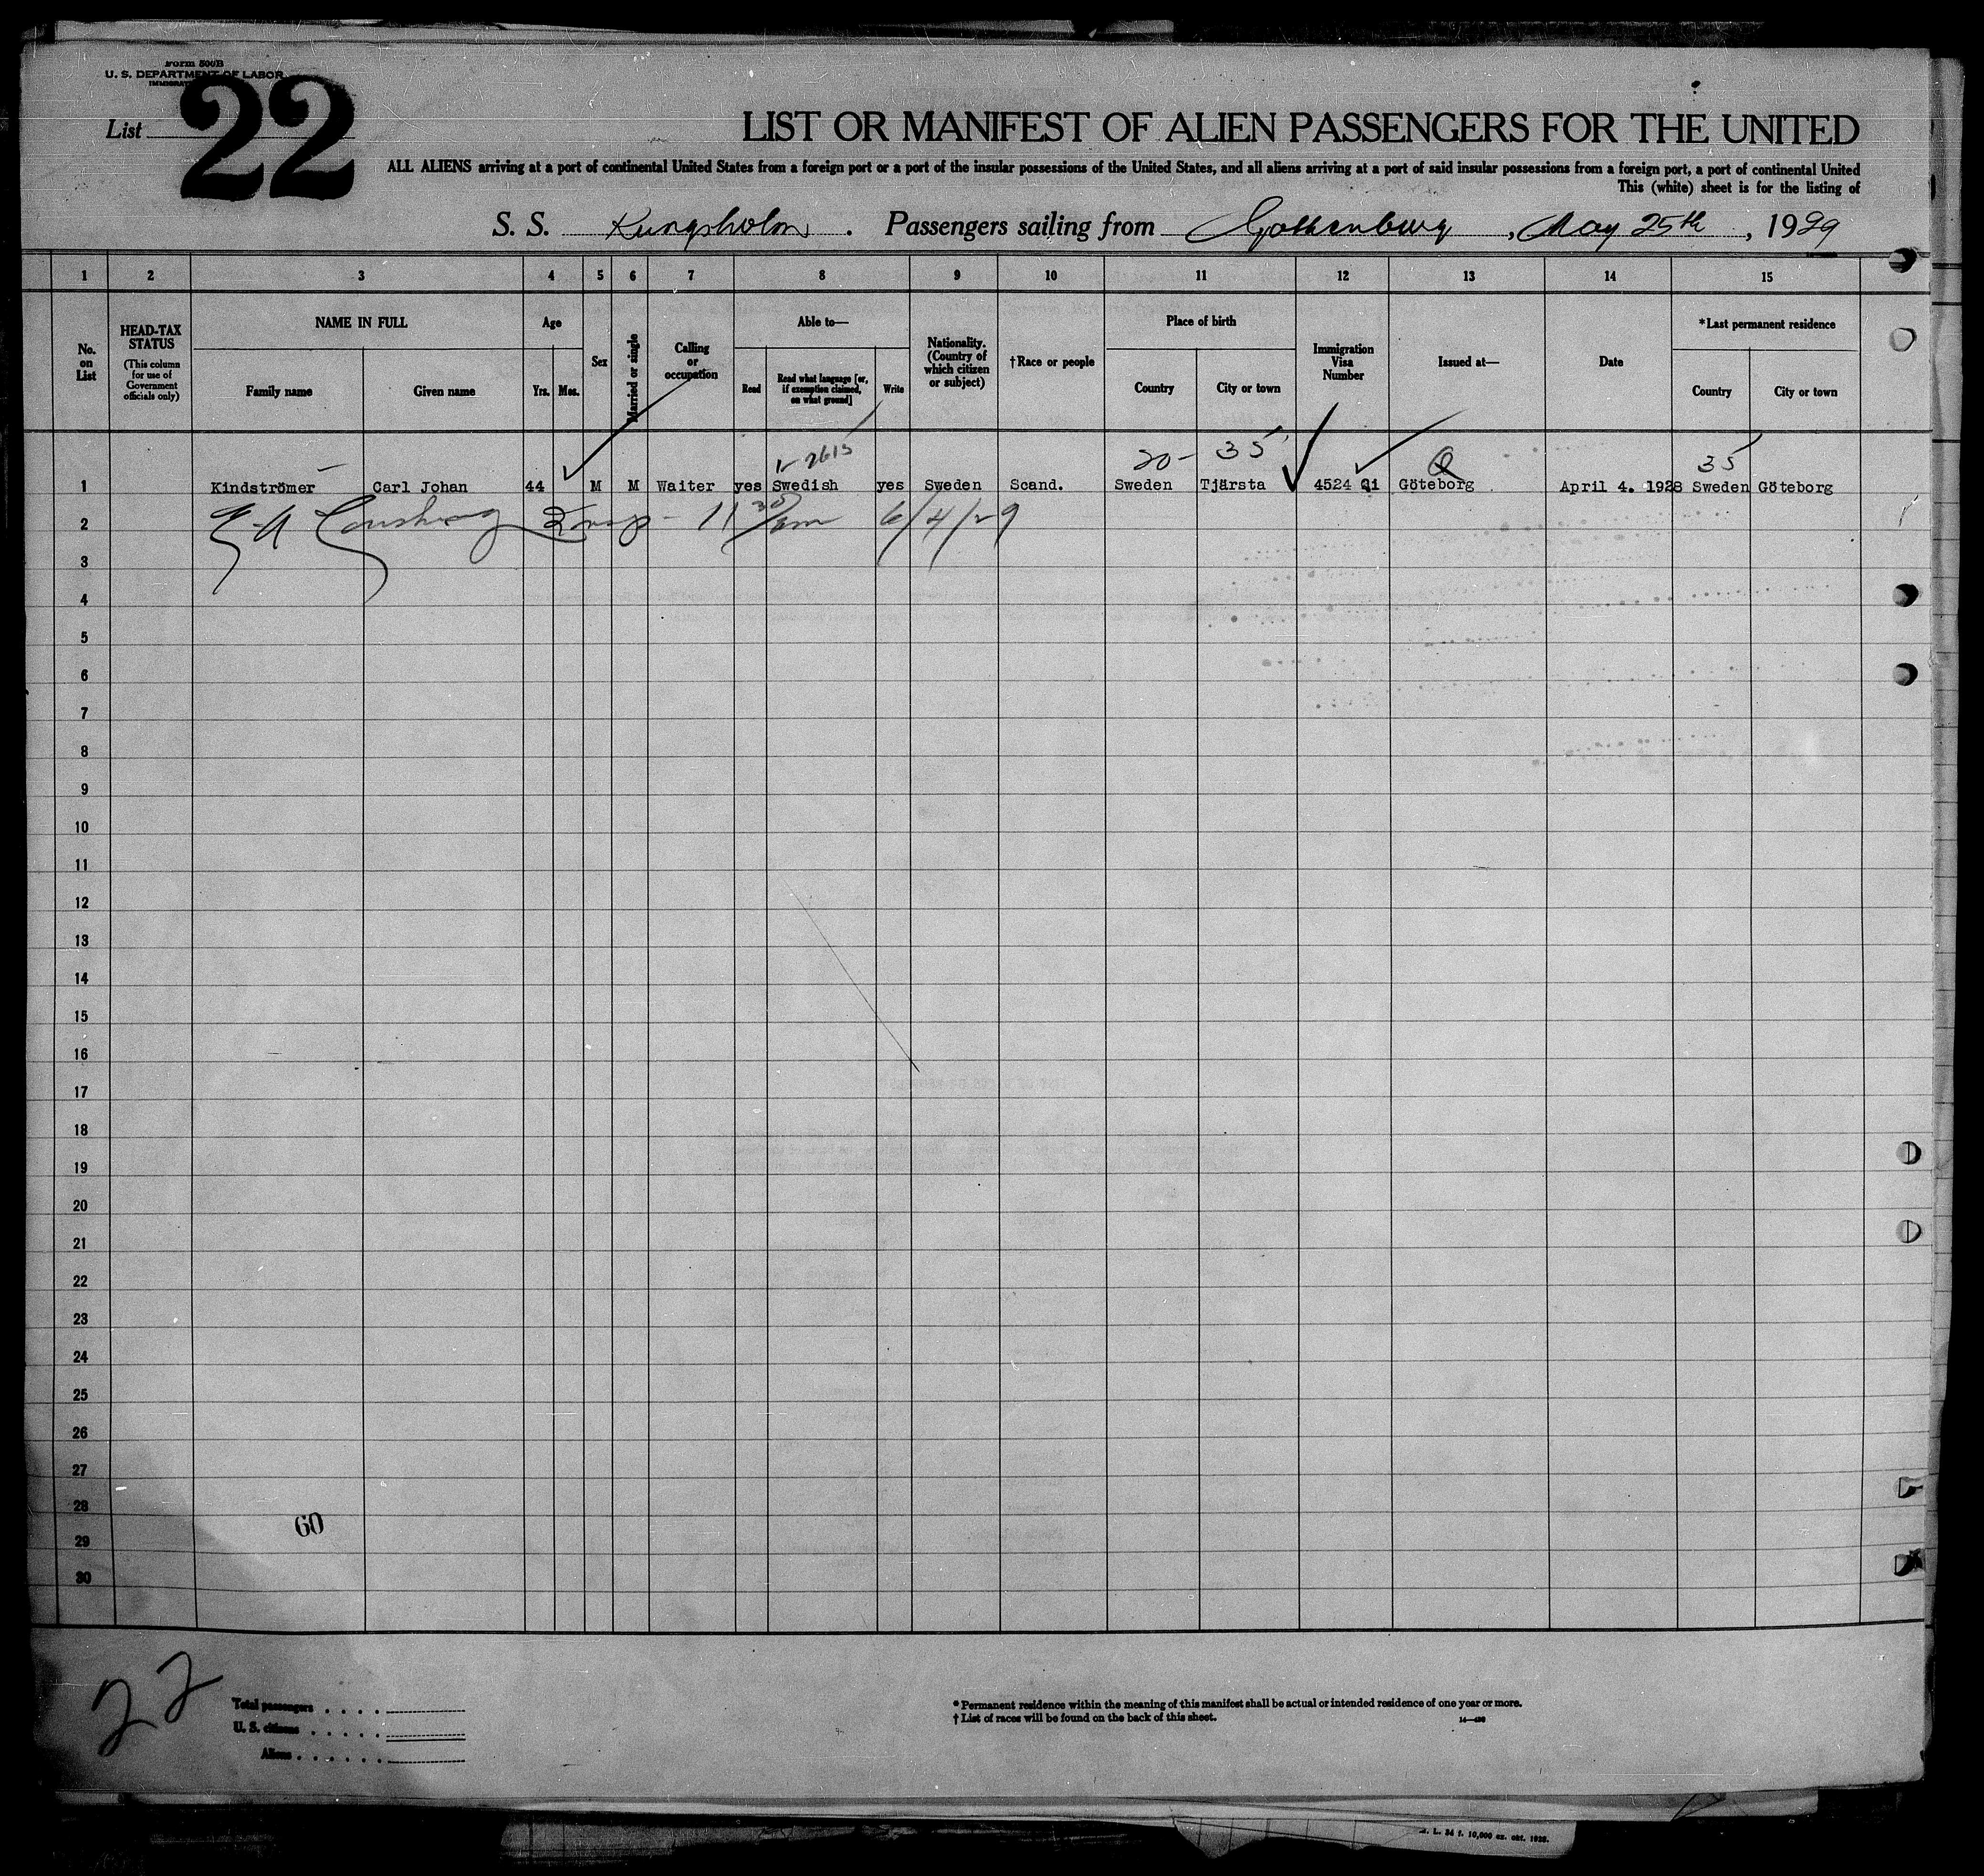 Form 500B
U. S. DEPARTMENT OF LABOR
List 22
LIST OR MANIFEST OF ALIEN PASSENGERS FOR THE UNITED
ALL ALIENS arriving at a port of continental United States from a foreign port or a port of the insular possessions of the United States, and all aliens arriving at a port of said insular possessions from a foreign port, a port of continental United
This (white) sheet is for the listing of
S. S. Kungsholm . Passengers sailing from Gothenburg , May 25th , 1929
1 2 3 4 5 6 7 8 9 10 11 12 13 14 15
No. on List
HEAD-TAX STATUS
(This column for use of Government officials only)
NAME IN FULL
Family name
Given name
Age
Yrs.
Mos.
Sex
Married or single
Calling or occupation
Able to—
Read
Read what language [or, if exemption claimed, on what ground]
Write
Nationality. (Country of which citizen or subject)
†Race or people
Place of birth
Country
City or town
Immigration Visa Number
Issued at—
Date
*Last permanent residence
Country
City or town
20- 35 35
1 Kindströmer Carl Johan 44 M M Waiter yes Swedish yes Sweden Scand. Sweden Tjärsta 4524 Qi Göteborg April 4. 1928 Sweden Göteborg
2 Insp- 11 30/am 6/4/29
3
4
5
6
7
8
9
10
11
12
13
14
15
16
17
18
19
20
21
22
23
24
25
26
27
28
60
29
30
22
Total passengers . . . .
U. S. citizens . . . . .
Aliens . . . . . .
* Permanent residence within the meaning of this manifest shall be actual or intended residence of one year or more.
† List of races will be found on the back of this sheet.
L. 34 f. 10,000 ex. okt. 1928.